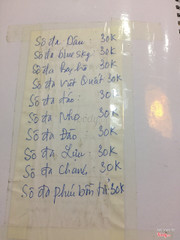 Sô đa Dâu : 30K
Sô đa blue sky : 30K
Sô đa bạc hà : 30K
Sô đa việt quất 30K
Sô đa táo : 30K
Sô đa Nho : 30K
Sô đa Đào : 30K
Sô đa Lựu : 30K
Sô đa Chanh : 30K
Sô đa phúc bồn tử 30K